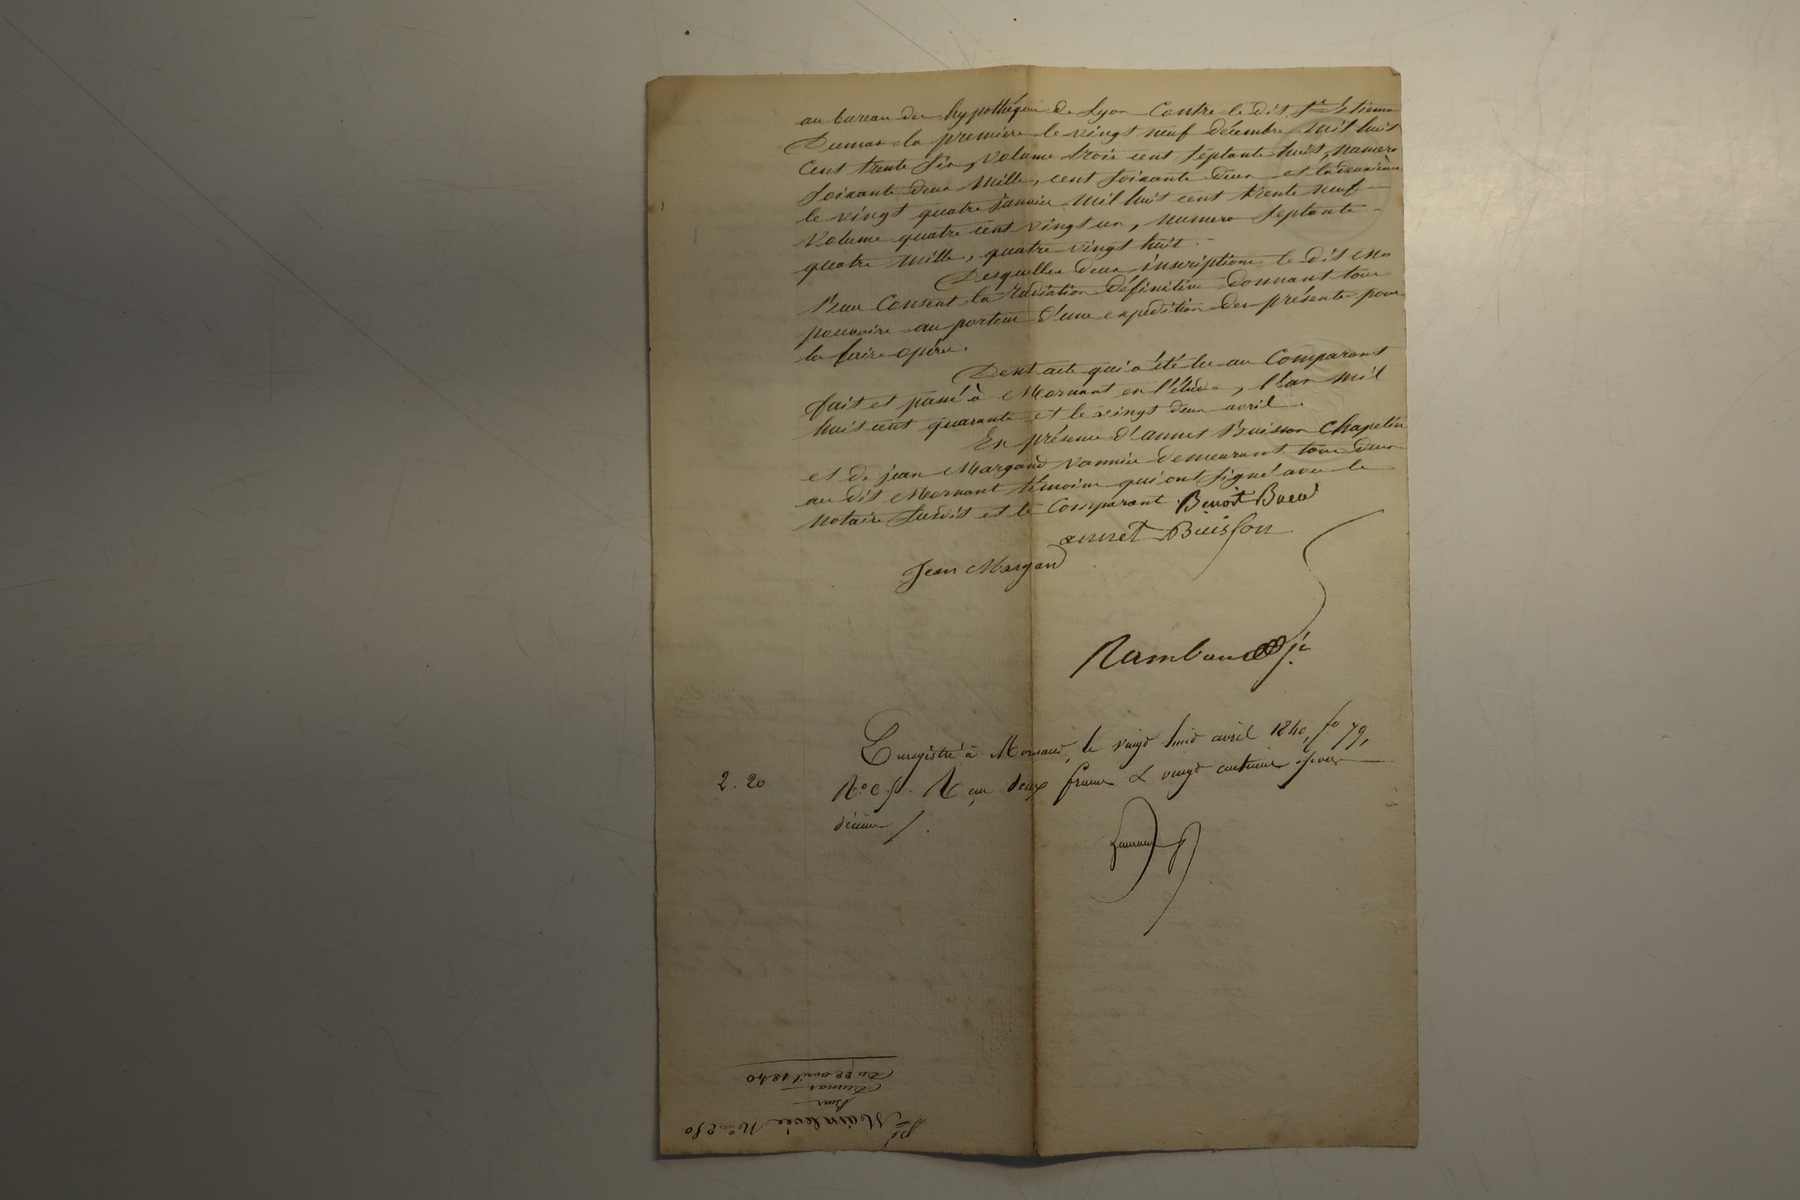 au bureau des hypothéques de Lyon Contre le dit Sr Etienne
Dumas la premiere le vingt neuf décembre mil huit
cent trente six, volume trois cent septante huit, numero
soixante deux mille, cent soixante deux et la deuxième
le vingt quatre janvier mil huit cent trente neuf
volume quatre cent vingt un, numero septante
quatre mille, quatre vingt huit.
Desquelles deux inscriptions le dit
Consent la radiation définitive donnant tous
pouvoirs au porteur d'une expédition des présentes pour
la faire opérer.
Dont acte qui a été lu au Comparant
fait et passé à Mornant en l'étude, l'an mil
huit cent quarante et le vingt deux avril.
En présence d'annet Buisson Chapelier
et de jean Margand vannier demeurant tous deux
au dit Mornant témoins qui ont signé avec le
notaire susdit et le Comparant Benoit
annet Buisson
Jean Margand
Rambaud je
Enregistré à Mornant, le vingt avril 1840, fo 79,
2. 20
Ro c. R eçu deux francs & vingt centimes pour
décime
du 22 avril 1840
Dumas
par
Mainlevée No 250